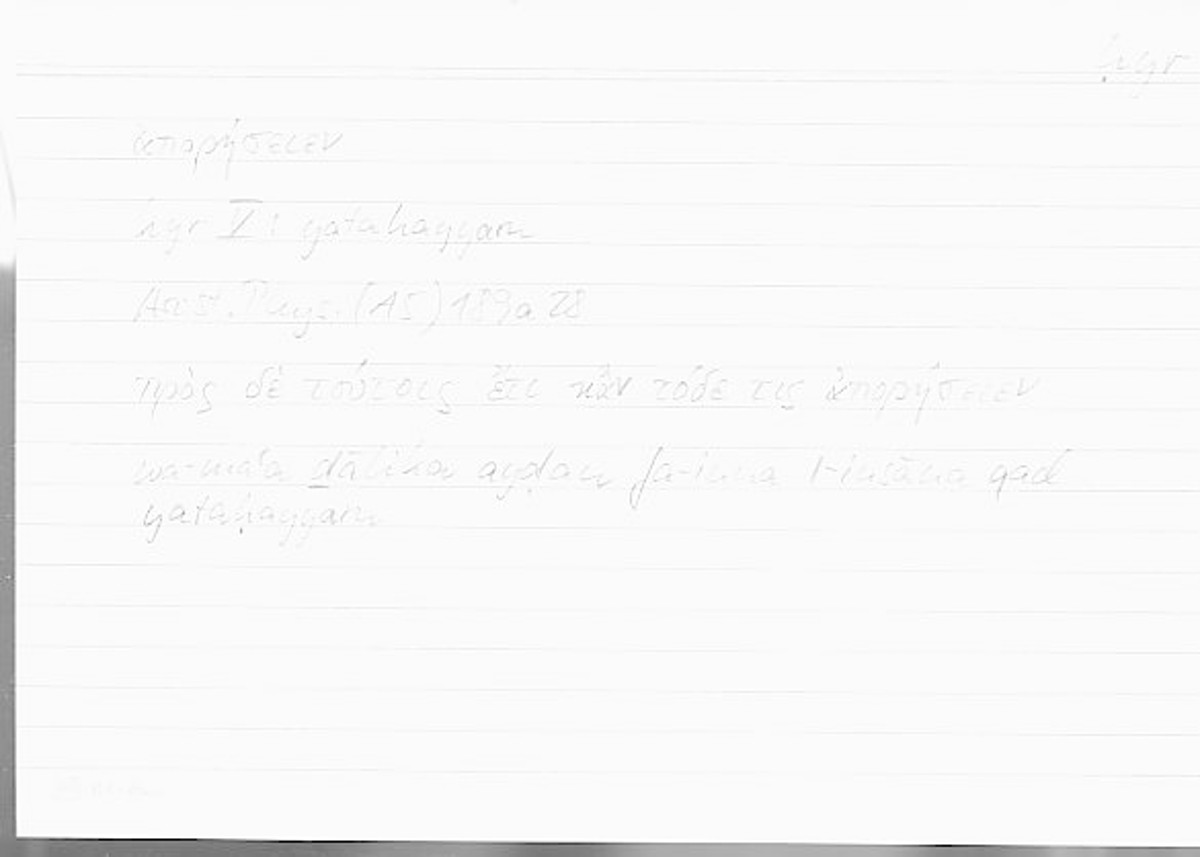 ḥyr
ἀπορήσειεν
ḥyr V: yataḥayyaru
Arist. Phys. (AS) 189a 28
πρὸς δὲ τούτοις ἔτι κἂν τόδε τις ἀπορήσειεν
wa-maʿa ḏālika ayḍan fa-inna l-insāna qad
yataḥayyaru